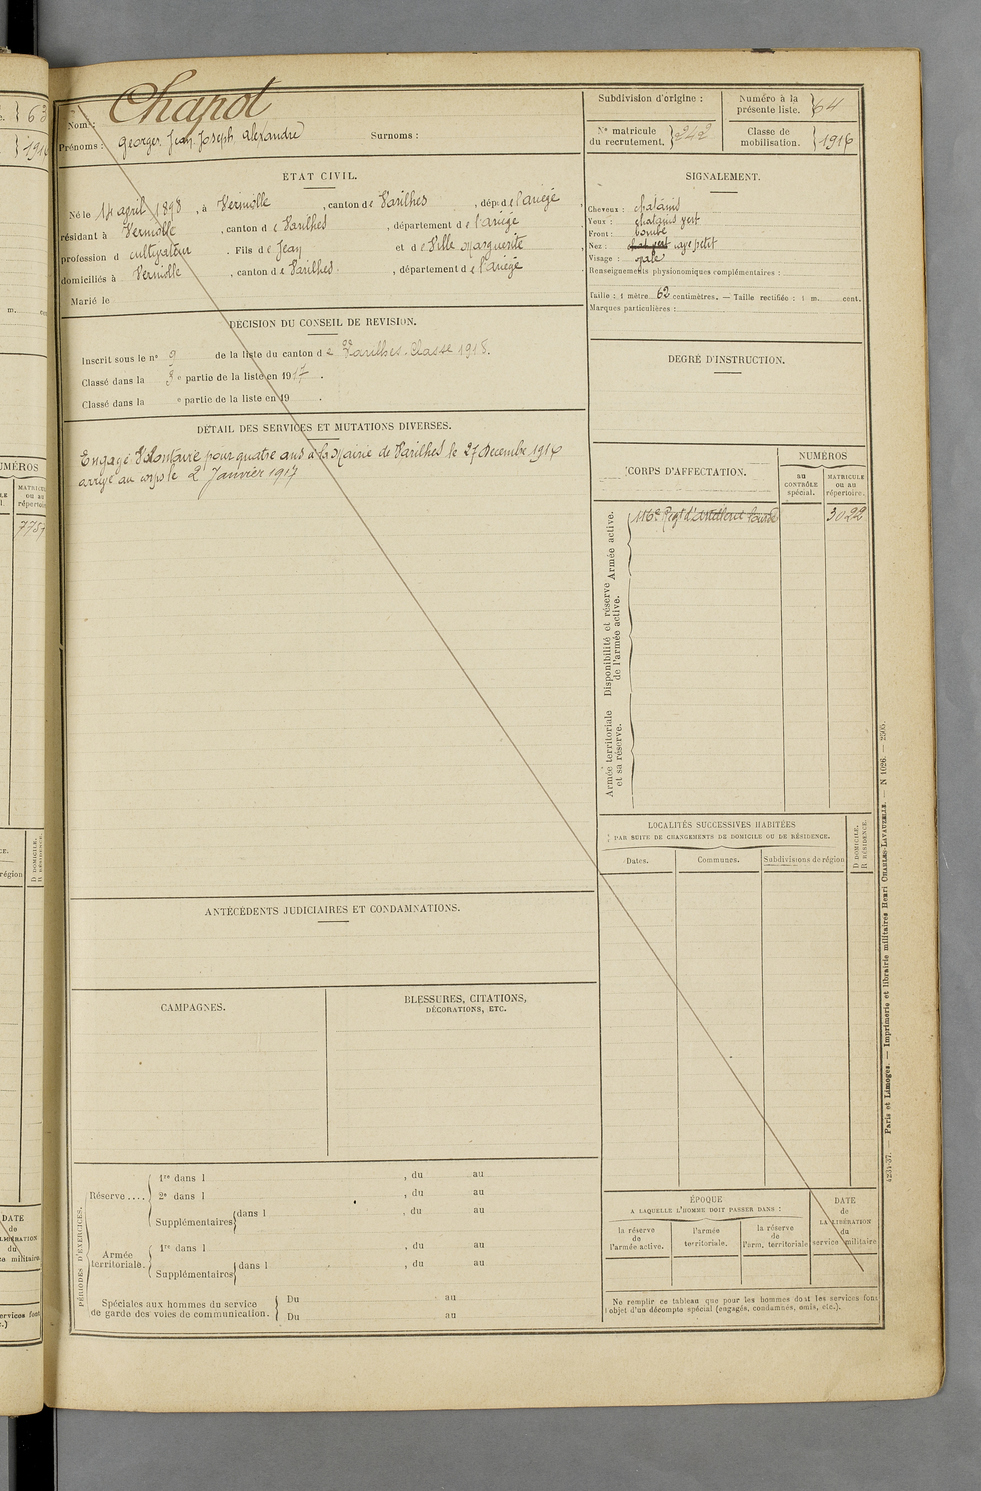 Chapot
Nom :
Prénoms : Georges Jean Joseph Alexandre Surnoms :
Subdivision d'origine :
Numéro à la présente liste. 64
N° matricule du recrutement. 242
Classe de mobilisation. 1916
ETAT CIVIL.
Né le 14 april 1898, à Verniolle, canton de Varilhes, dép de l'ariège
résidant à Verniolle, canton de Varilhes, département de l'ariège
profession d cultivateur. Fils de Jean et de Ville Marguerite
domiciliés à Verniolle, canton de Varilhes, département de l'ariège
Marié le
SIGNALEMENT.
Cheveux : chatains
Yeux : chatains vert
Front : bombé
Nez : petit
Visage : ovale
Renseignements physionomiques complémentaires :
Taille : 1 mètre 62 centimètres. — Taille rectifiée : 1 m. cent.
Marques particulières :
DÉCISION DU CONSEIL DE REVISION.
Inscrit sous le n° 9 de la liste du canton de Varilhes. Classe 1918.
Classé dans la e partie de la liste en 1917.
Classé dans la e partie de la liste en 19 .
DEGRÉ D'INSTRUCTION.
DÉTAIL DES SERVICES ET MUTATIONS DIVERSES.
Engagé Volontaire pour quatre ans à la Mairie de Varilhes le 27 Decembre 1916
arrivé au corps le 2 Janvier 1917
CORPS D'AFFECTATION.
NUMÉROS
au CONTRÔLE spécial.
MATRICULE ou au répertoire.
Armée active.
116e Regt d'artillerie lourde 3022
Disponibilité et réserve de l'armée active.
Armée territoriale et sa réserve.
LOCALITÉS SUCCESSIVES HABITÉES
PAR SUITE DE CHANGEMENTS DE DOMICILE OU DE RÉSIDENCE.
Dates. Communes. Subdivisions de région
D DOMICILE.
R RÉSIDENCE.
ANTÉCÉDENTS JUDICIAIRES ET CONDAMNATIONS.
CAMPAGNES.
BLESSURES, CITATIONS,
DÉCORATIONS, ETC.
PÉRIODES D'EXERCICES.
Réserve....
1re dans l , du au
2e dans l , du au
Supplémentaires dans l , du au
Armée territoriale.
1re dans l , du au
Supplémentaires dans l , du au
Spéciales aux hommes du service
de garde des voies de communication.
Du au
Du au
ÉPOQUE
A LAQUELLE L'HOMME DOIT PASSER DANS :
la réserve de l'armée active.
l'armée territoriale.
la réserve de l'arm. territoriale
DATE de LA LIBÉRATION du service militaire
Ne remplir ce tableau que pour les hommes dont les services font
l'objet d'un décompte spécial (engagés, condamnés, omis, etc.).
Paris et Limoges. — Imprimerie et librairie militaires Henri CHARLES-LAVAUZELLE. — N 1026. —
63
NUMÉROS
MATRICULE ou au répertoire
7757
région
D DOMICILE.
R RÉSIDENCE.
DATE
de
LIBÉRATION
du
militaire
services font